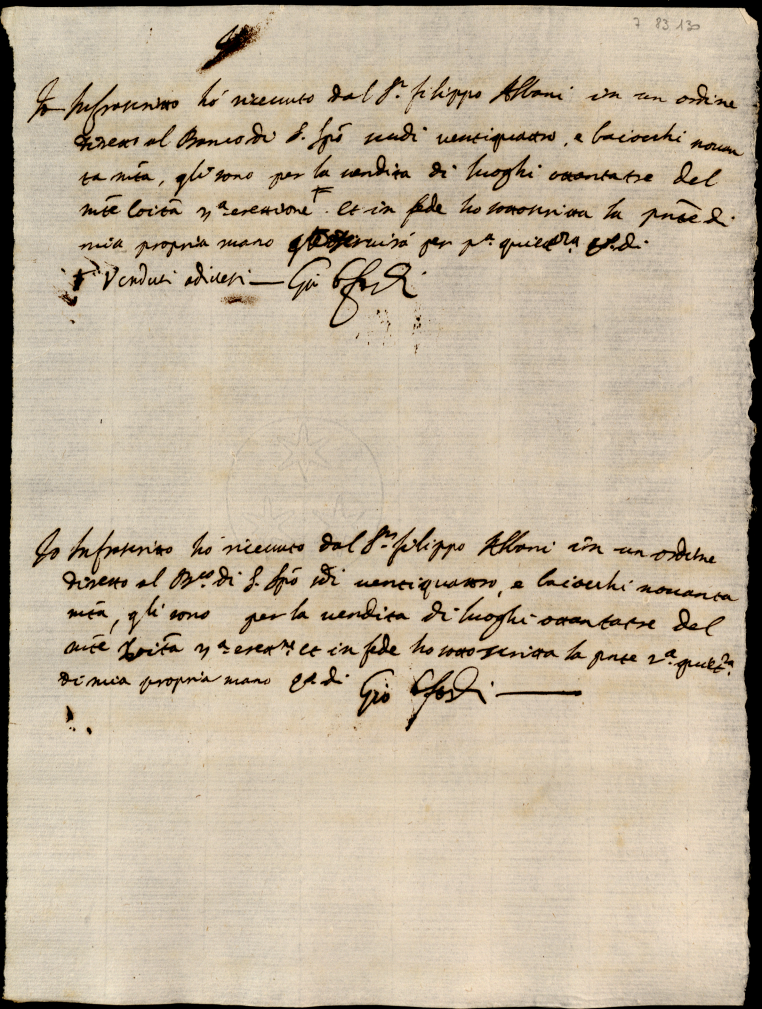 7 83 130
Io Infrascritto hó riceuuto dal Sr. filippo Albani in un ordine
diretto al Banco di S. Spő scudi uentiquattro, e baiocchi nouan
ta m̃ta, q̃li sono per la uendita di luoghi ottantatre del
m̃te 2a erettione et in fede ho sottoscritta la pñte di
mia propria mano seruirá per pa quietza di
Venduti adiuersi — Gio
Io Infrascritto hó riceuuto dal Sr. filippo Albani in un ordine
diretto al Bco. di S. Spő sdi uentiquattro, e baiocchi nouanta
m̃ta, q̃li sono per la uendita di luoghi ottantatre del
m̃te et in fede ho sottoscritta la pnte 2a. quieta.
di mia propria mano q.di Gio